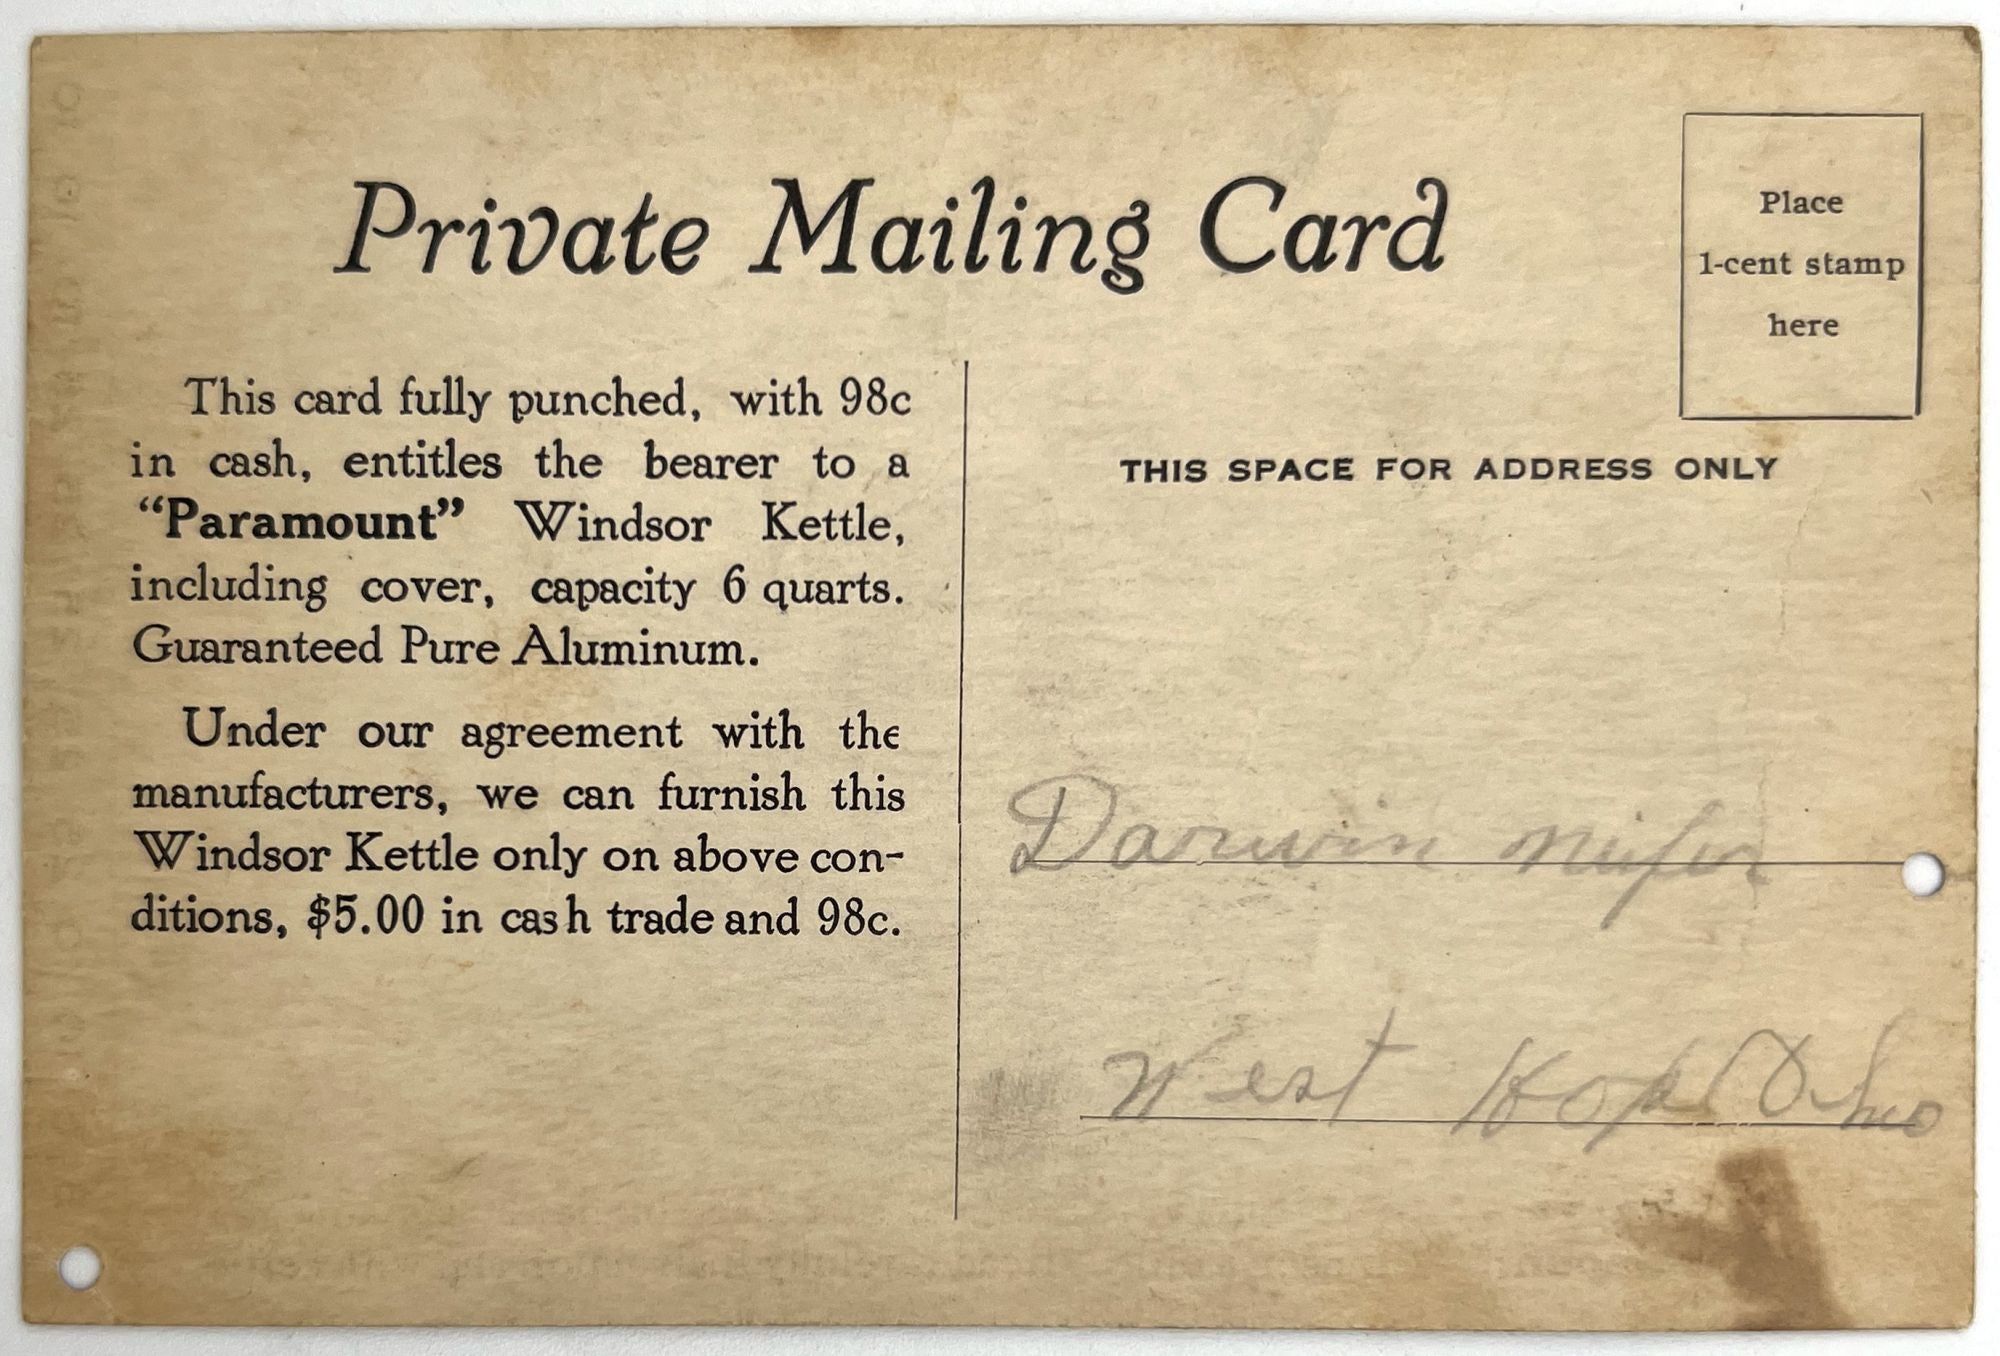 Private Mailing Card
Place
1-cent stamp
here
This card fully punched, with 98c
in cash, entitles the bearer to a
“Paramount” Windsor Kettle,
including cover, capacity 6 quarts.
Guaranteed Pure Aluminum.
Under our agreement with the
manufacturers, we can furnish this
Windsor Kettle only on above con-
ditions, $5.00 in cash trade and 98c.
THIS SPACE FOR ADDRESS ONLY
Darwin
West Hope Ohio